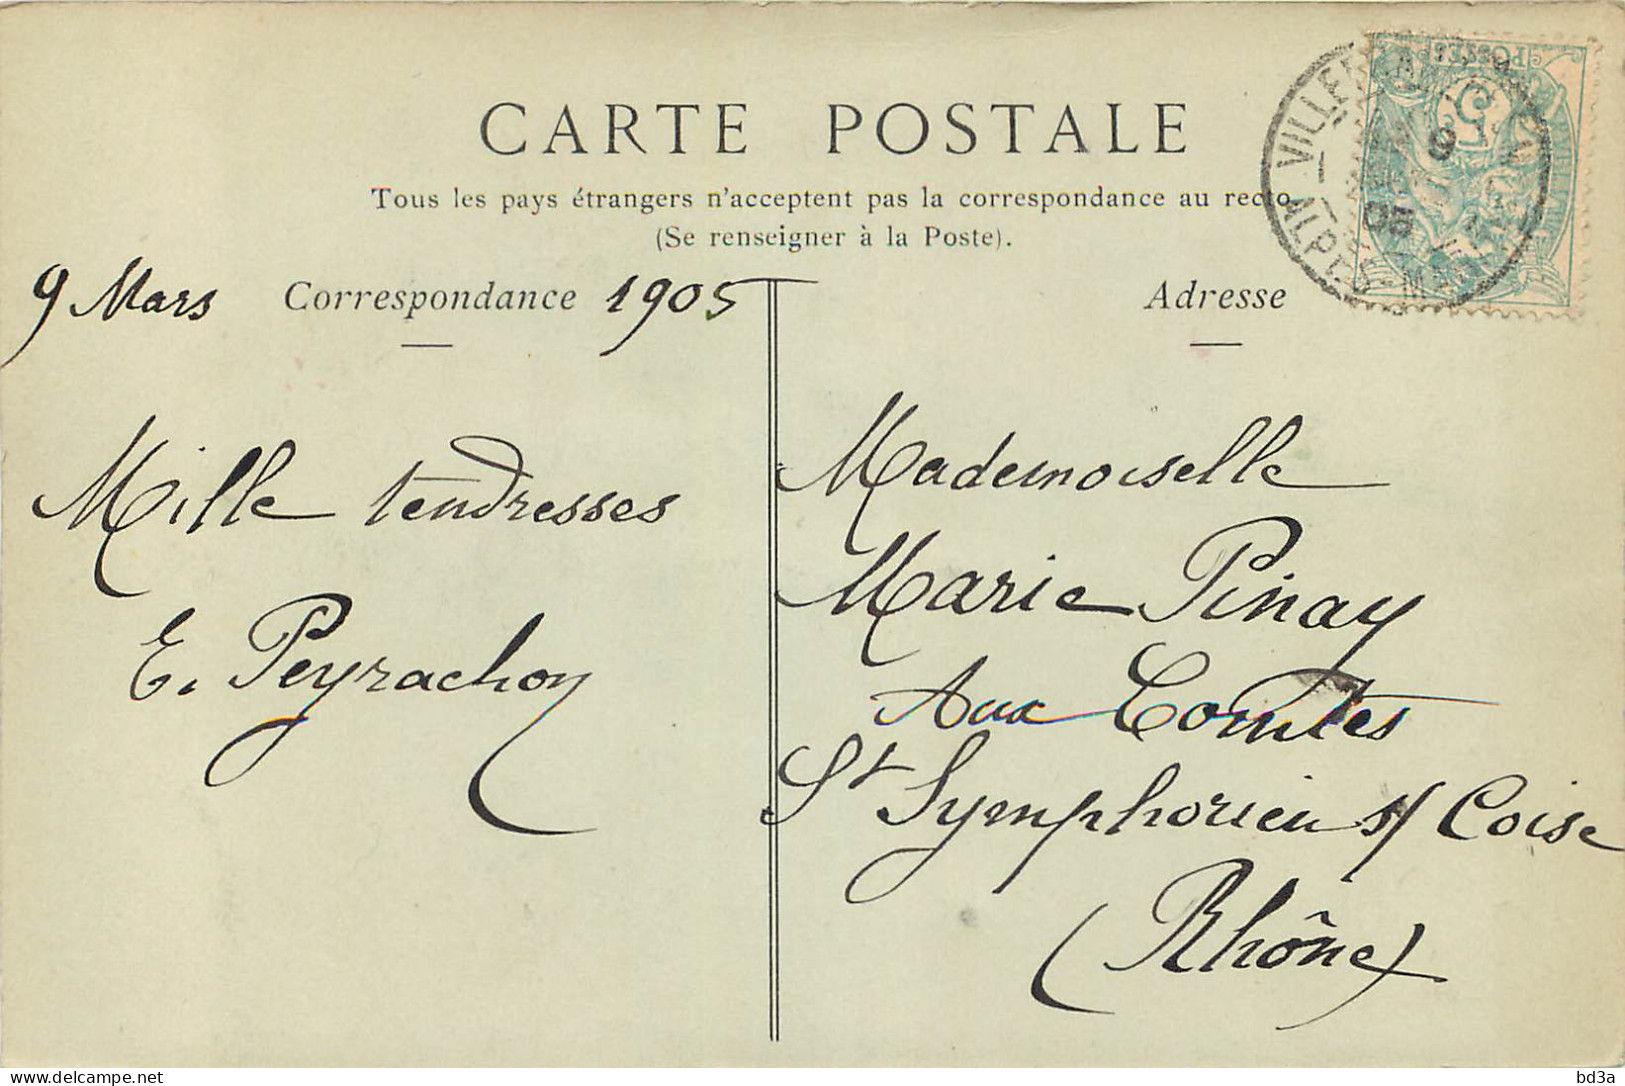 CARTE POSTALE
Tous les pays étrangers n'acceptent pas la correspondance au recto
(Se renseigner à la Poste).
9 Mars Correspondance 1905
Mille tendresses
E. Peyrachon
Adresse
Mademoiselle
Marie Pinay
Aux Comtes
St Symphorien s/ Coise
(Rhône)
POSTES
5
9
05
ALPES-M
delcampe.net
bd3a